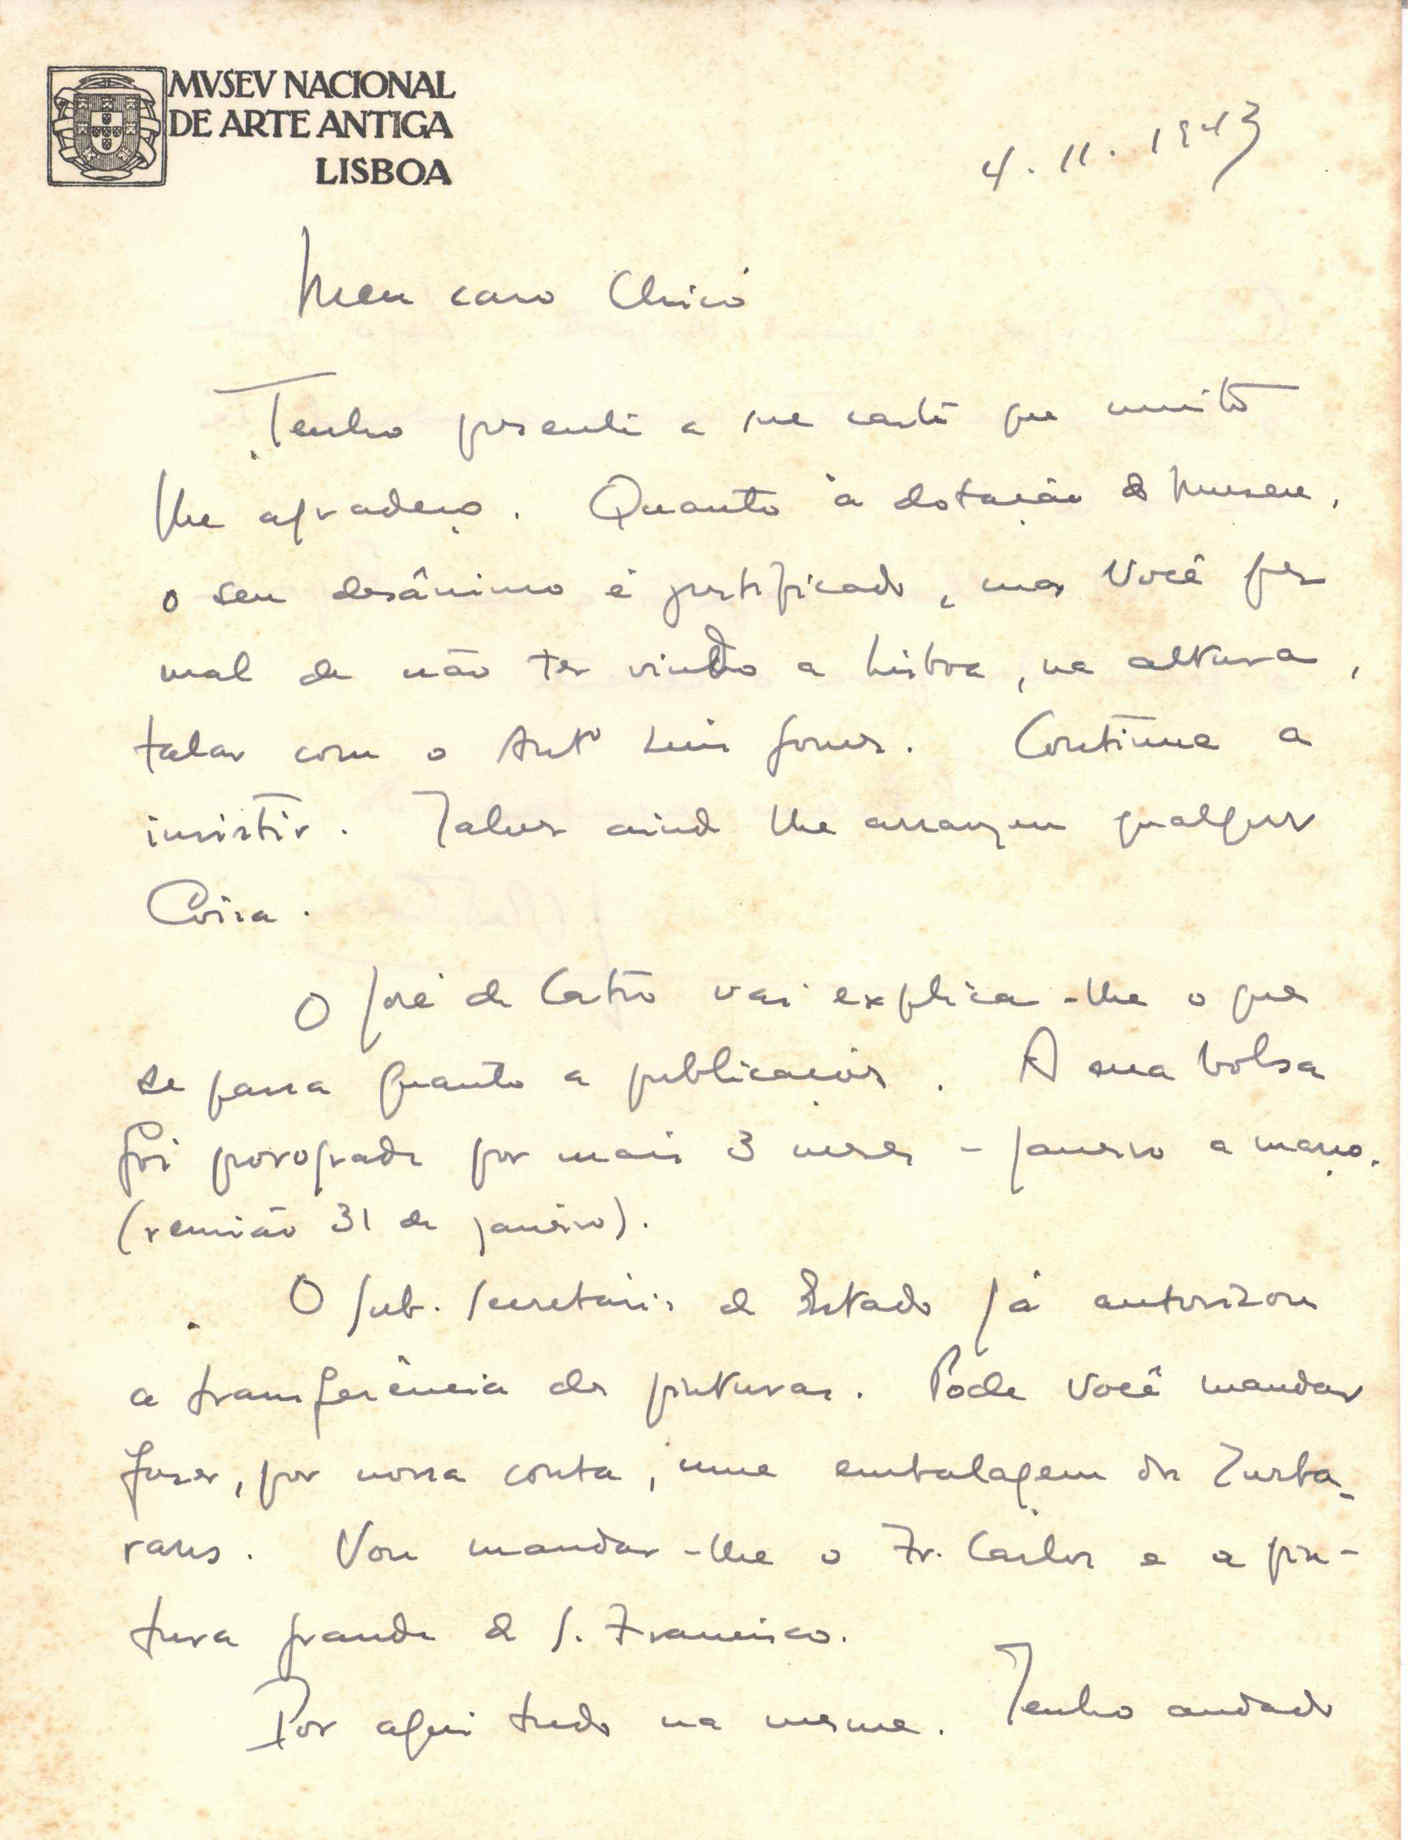 MVSEV NACIONAL
DE ARTE ANTIGA
LISBOA
4. 11. 1943
Meu caro Chicó
Tenho presente a sua carta que muito
lhe agradeço. Quanto à dotação do Museu,
o seu desânimo é justificado, mas Você fez
mal de não ter vindo a Lisboa, na altura,
falar com o Antº Luis Gomes. Continue a
insistir. Talvez ainda lhe arranjem qualquer
Coisa.
O José de Castro vai explicar-lhe o que
se passa quanto a publicações. A sua bolsa
foi prorogada por mais 3 meses - Janeiro a março.
(reunião 31 de janeiro).
O Sub. Secretário de Estado já autorizou
a transferência das pinturas. Pode Você mandar
fazer, por nossa conta, uma embalagem dos Zurba-
rans. Vou mandar-lhe o Fr. Carlos e a pin-
tura grande de S. Francisco.
Por aqui tudo na mesma. Tenho andado